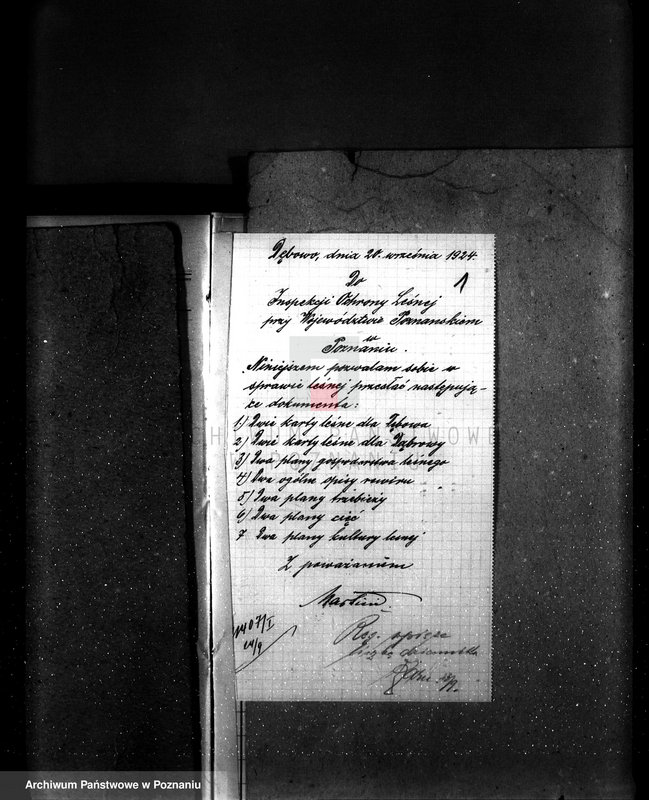 Dębowo, dnia 20. września 1924.
1
Do
Inspekcji Ochrony Leśnej
przy Województwie Poznanskiem
w
Poznaniu.
Niniejszem pozwalam sobie w
sprawie leśnej przesłać następują-
ce dokumenta:
1) Dwie karty leśne dla Dębowa
2) Dwie karty leśne dla Dąbrowy
3) Dwa plany gospodarstwa leśnego
4) Dwa ogólne opisy rewiru
5) Dwa plany trzebieży
6) Dwa plany cięć
7 Dwa plany kultury leśnej
Z poważaniem
Martini
Archiwum Państwowe w Poznaniu